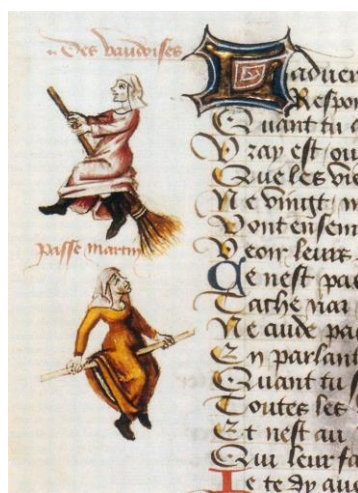 Des vaudoises
passe martin
Laduer
Respon
Quant tu
Vray est ou
Que les vie
Ne vingt m
Vont ensem
Veoir leurs
Ce nest pas
Tache nar
Ne cuide pas
En parlant
Quant tu
Toutes les
Et nest au
Qui leur fa
Je te dy que